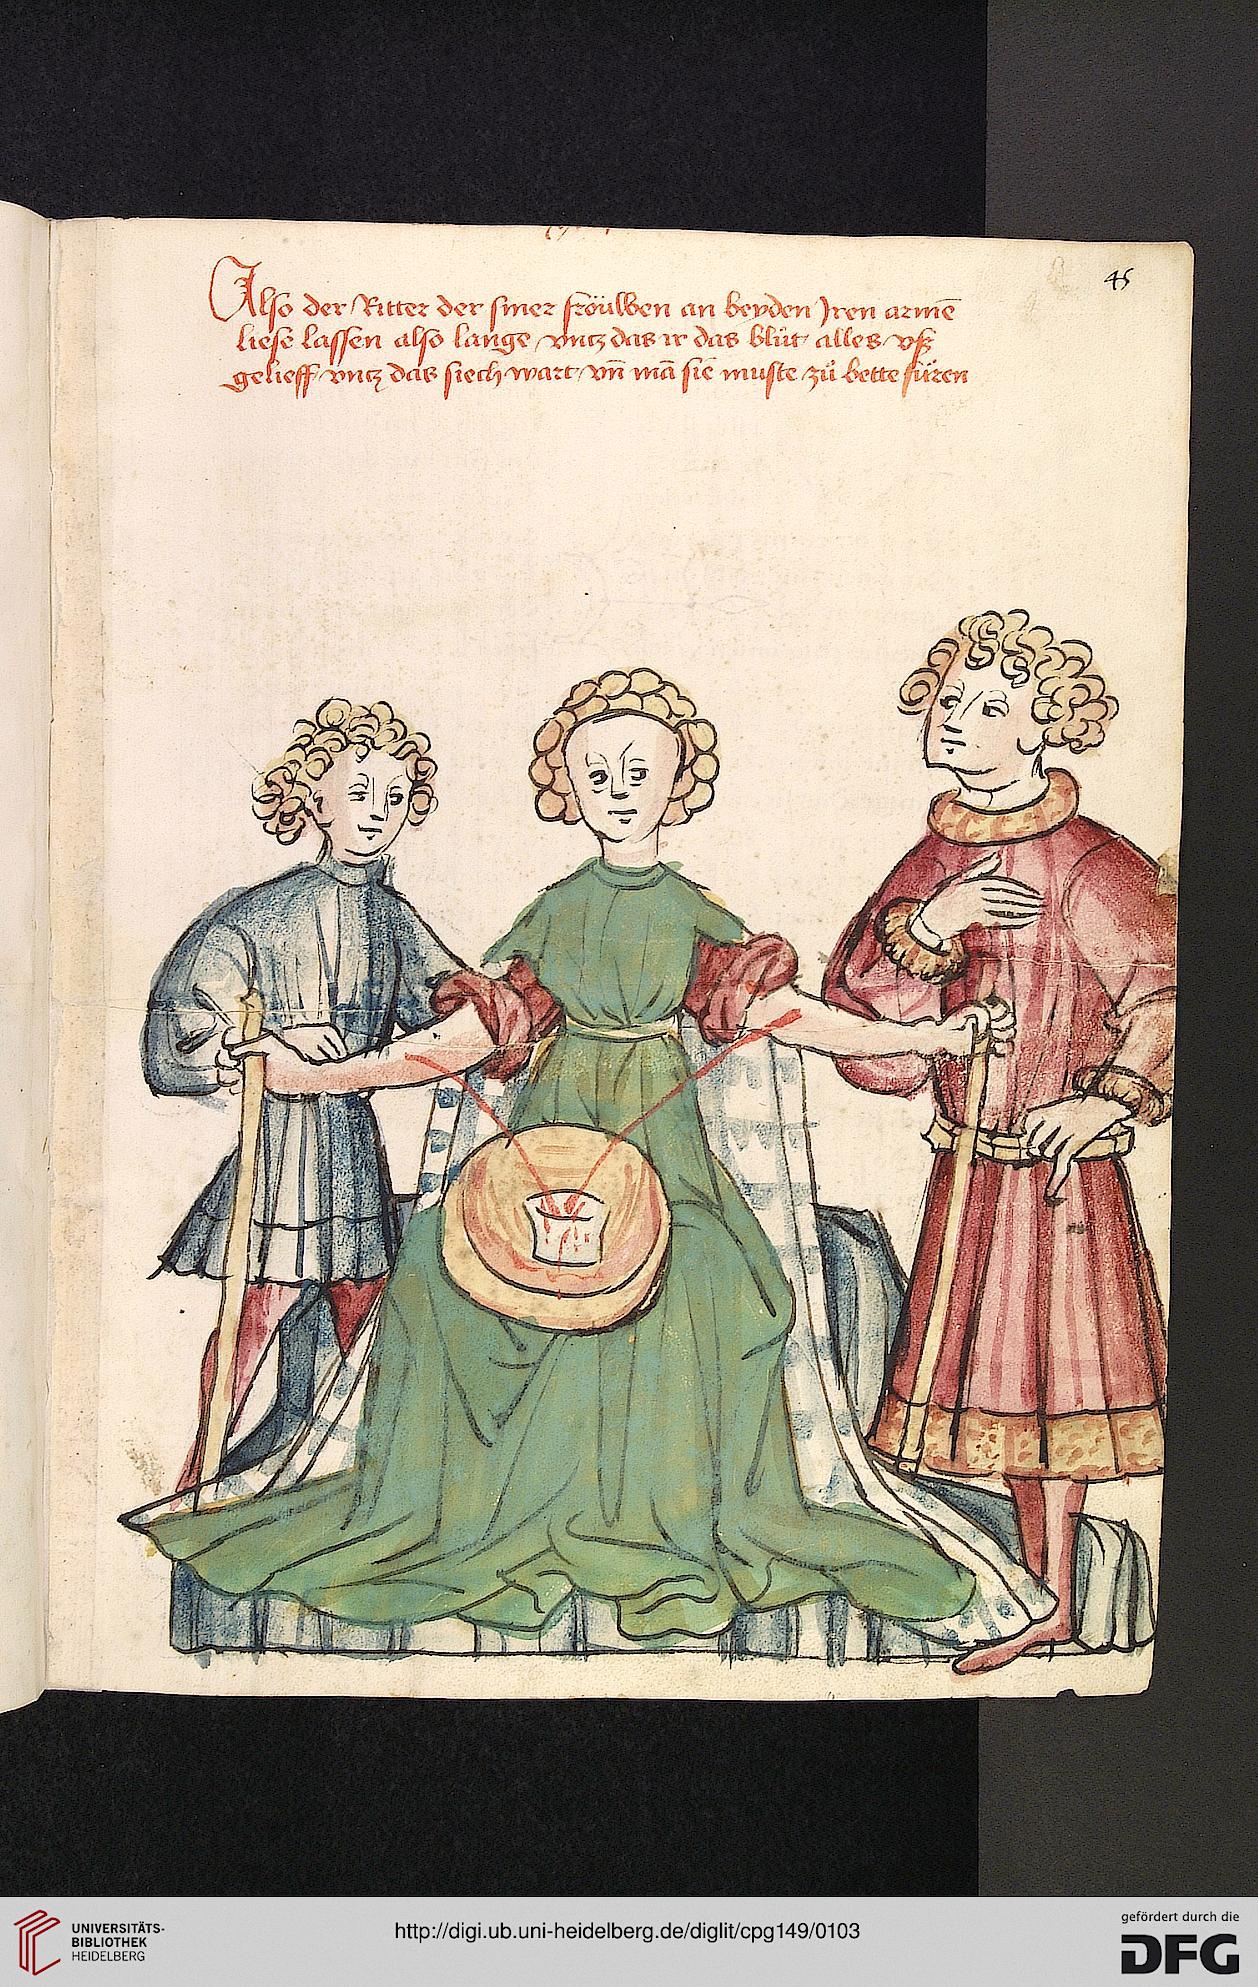 45
Also der Ritter der siner fröuwen an beyden Iren armē
liese lassen also lange vntz das ir das blůt alles vß
gelieff vntz das siech wart vn̄ mā sie muste zů bette füren
UNIVERSITÄTS-
BIBLIOTHEK
HEIDELBERG
http://digi.ub.uni-heidelberg.de/diglit/cpg149/0103
gefördert durch die
DFG